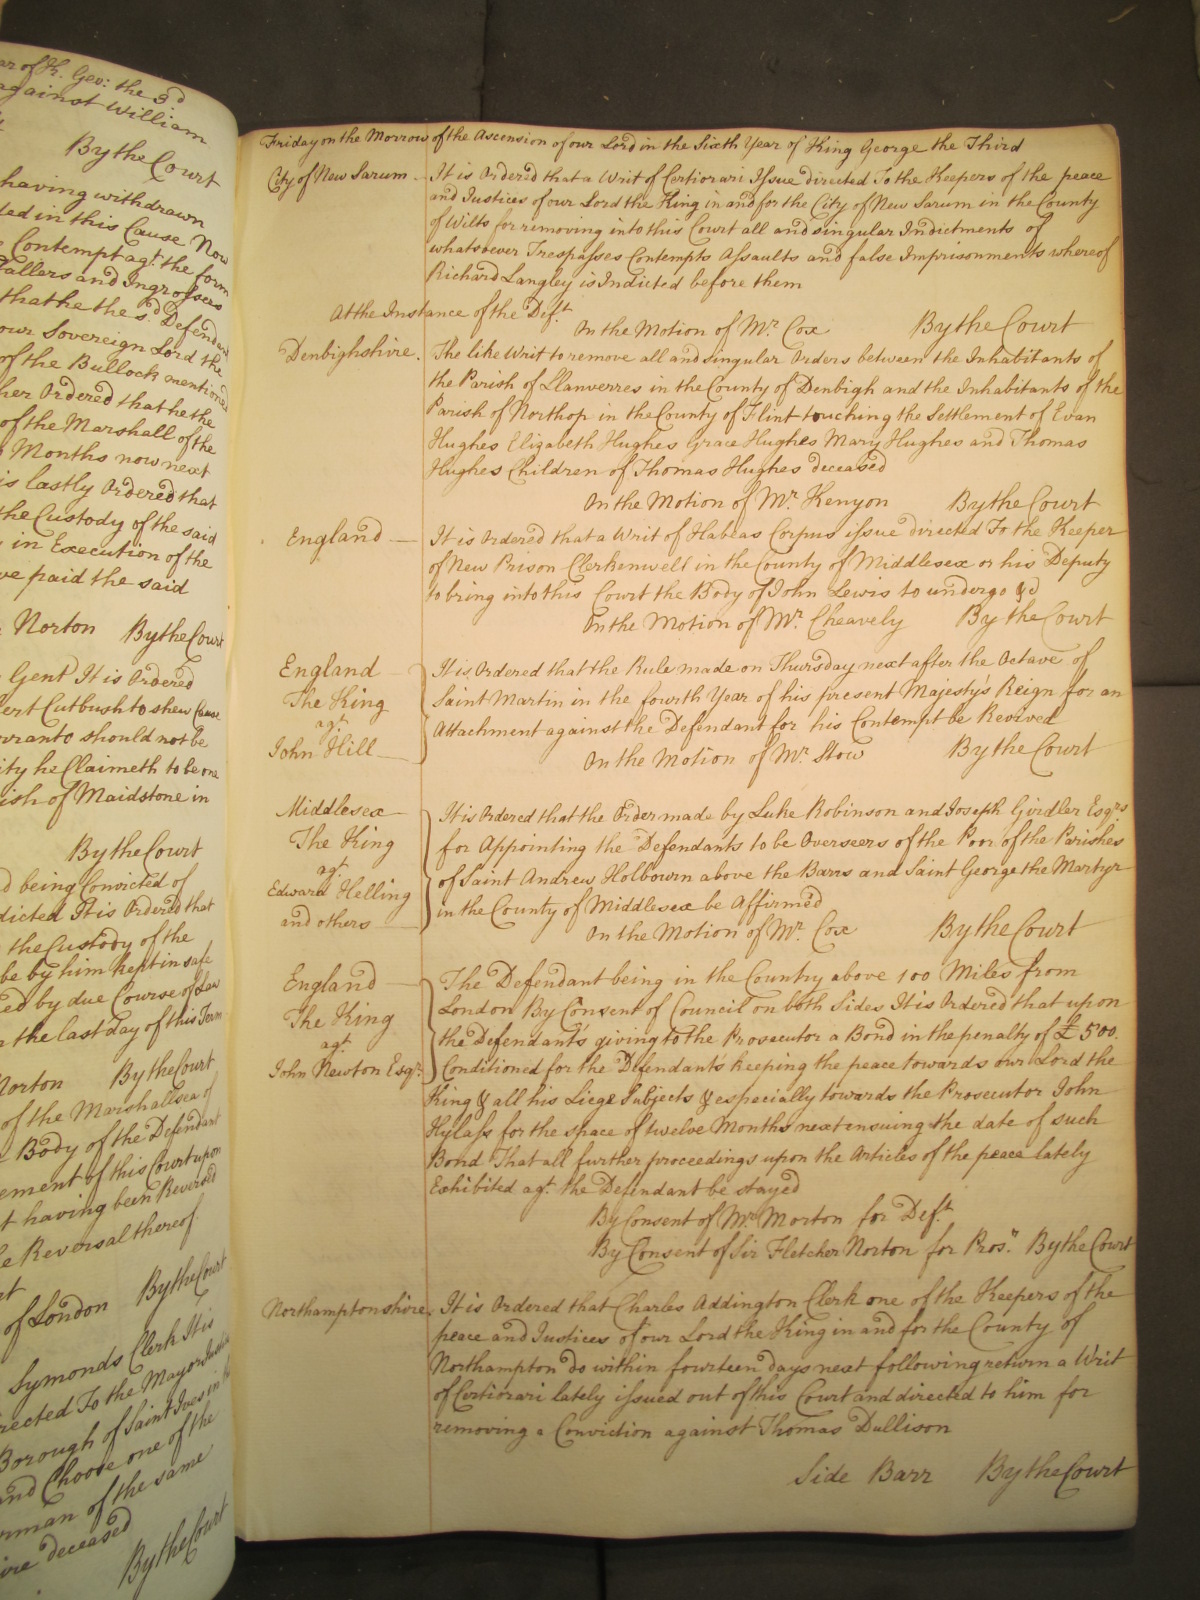 ar of K. Geo: the 3d
against William
By the Court
having withdrawn
ded in this Cause Now
Contempt agt. the form
Fallers and Ingrossers
that he the sd. Defendant
our Sovereign Lord the
of the Bullock mentioned
her Ordered that he the
of the Marshall of the
Months now next
is lastly Ordered that
the Custody of the said
in Execution of the
ve paid the said
Norton By the Court
Gent It is Ordered
ert Cutbush to shew Cause
rranto should not be
ity he Claimeth to be one
ish of Maidstone in
By the Court
d being Convicted of
dicted It is Ordered that
the Custody of the
be by him kept in safe
ed by due Course of Law
n the last day of this Term
Norton By the Court
of the Marshallsea of
Body of the Defendant
ement of this Court upon
t having been Reversed
e Reversal thereof
of London By the Court
Symonds Clerk It is
rected To the Mayor
Borough of Saint Ives in the
and Choose one of the
rman of the same
ire deceased
By the Court
Friday on the Morrow of the Ascension of our Lord in the Sixth Year of King George the Third
City of New Sarum - It is Ordered that a Writ of Certiorari Issue directed To the Keepers of the peace
and Justices of our Lord the King in and for the City of New Sarum in the County
of Wilts for removing into this Court all and singular Indictments of
whatsoever Trespasses Contempts Assaults and false Imprisonments whereof
Richard Langley is Indicted before them
At the Instance of the Deft.
On the Motion of Mr. Cox By the Court
Denbighshire. The like Writ to remove all and singular Orders between the Inhabitants of
the Parish of Llanverres in the County of Denbigh and the Inhabitants of the
Parish of Northop in the County of Flint touching the Settlement of Evan
Hughes Elizabeth Hughes Grace Hughes Mary Hughes and Thomas
Hughes Children of Thomas Hughes deceased
On the Motion of Mr. Kenyon By the Court
England It is Ordered that a Writ of Habeas Corpus issue directed To the Keeper
of New Prison Clerkenwell in the County of Middlesex or his Deputy
to bring into this Court the Body of John Lewis to undergo &c
On the Motion of Mr. Cheavely By the Court
England
The King
agt.
John Hill
It is Ordered that the Rule made on Thursday next after the Octave of
Saint Martin in the fourth Year of his present Majesty's Reign for an
Attachment against the Defendant for his Contempt be Revived
On the Motion of Mr. Stow By the Court
Middlesex
The King
agt.
Edward Helling
and others
It is Ordered that the Order made by Luke Robinson and Joseph Girdler Esqrs
for Appointing the Defendants to be Overseers of the Poor of the Parishes
of Saint Andrew Holbourn above the Barrs and Saint George the Martyr
in the County of Middlesex be Affirmed
On the Motion of Mr. Cox By the Court
England
The King
agt.
John Newton Esqr.
The Defendant being in the Country above 100 Miles from
London By Consent of Council on both Sides It is Ordered that upon
the Defendant's giving to the Prosecutor a Bond in the penalty of £500.
Conditioned for the Defendant's keeping the peace towards our Lord the
King & all his Liege Subjects & especially towards the Prosecutor John
Hylass for the space of twelve Months next ensuing the date of such
Bond That all further proceedings upon the Articles of the peace lately
Exhibited agt. the Defendant be stayed
By Consent of Mr. Morton for Deft.
By Consent of Sir Fletcher Norton for Pros.r By the Court
Northamptonshire. It is Ordered that Charles Addington Clerk one of the Keepers of the
peace and Justices of our Lord the King in and for the County of
Northampton do within fourteen days next following return a Writ
of Certiorari lately issued out of this Court and directed to him for
removing a Conviction against Thomas Dullison
Side Barr By the Court